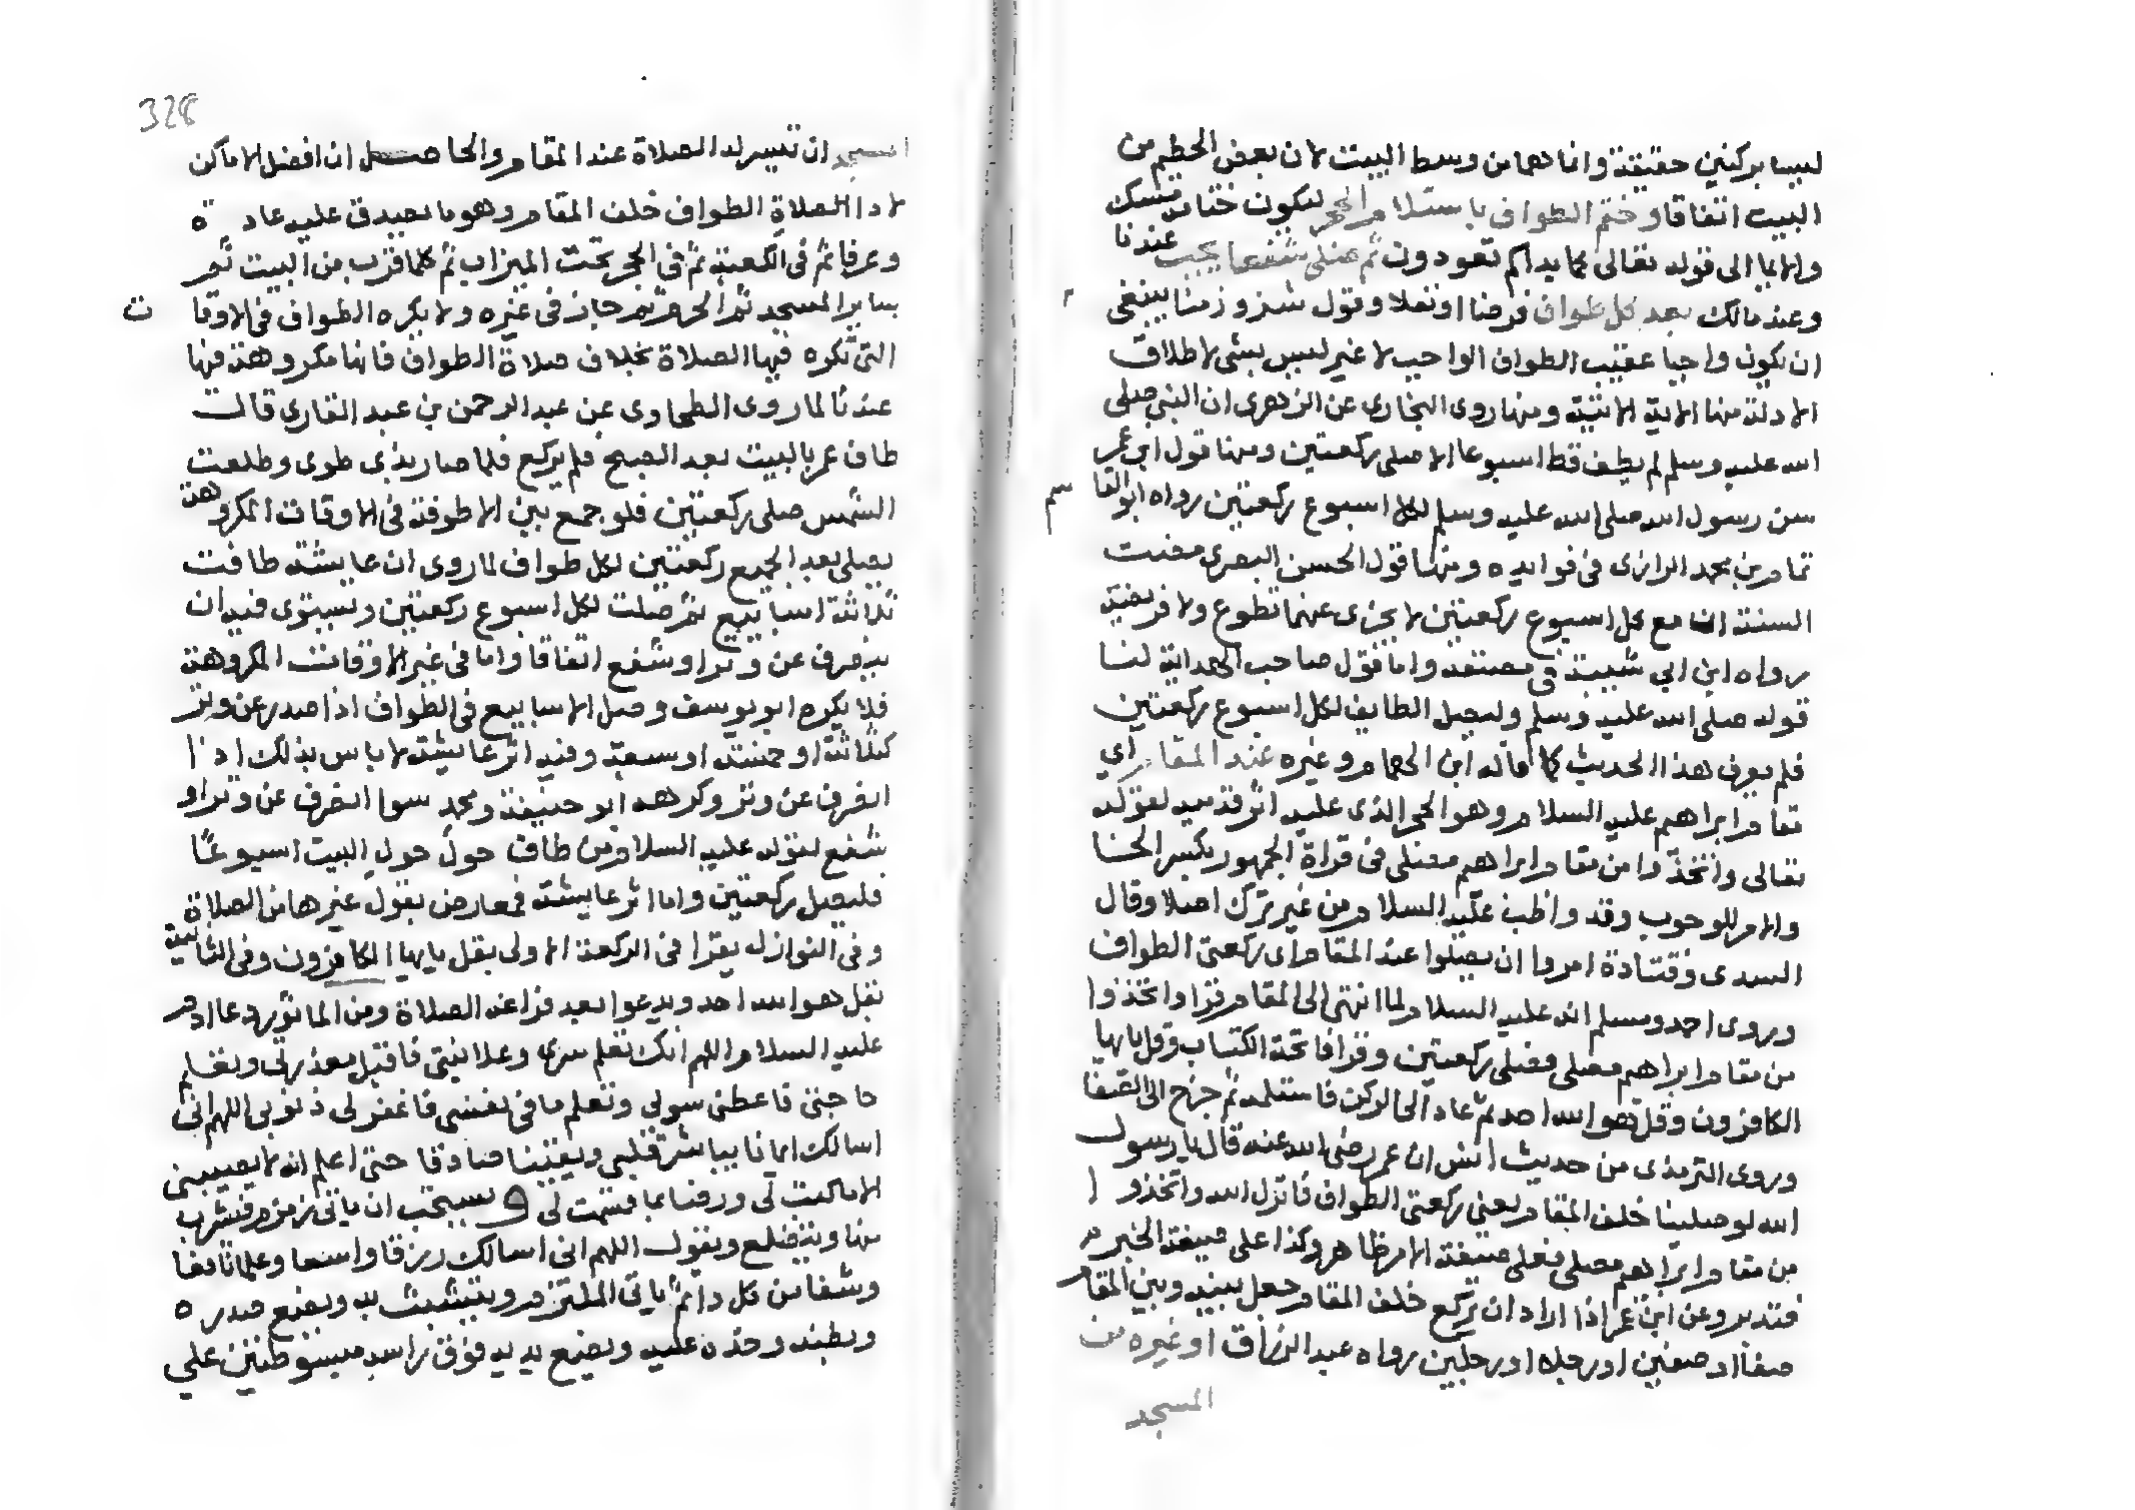 ليسا بركنين حقيقة وانما هما من وسط البيت لان بعض الحطيم من
البيت اتفاقا وختم الطواف باستلام الحجر ليكون ختامه مسك
والايما الى قوله تعالى كما بداكم تعودون ثم صلى شفعا يجب عندنا
وعند مالك بعد كل طواف فرضا او نفلا وقول شذوذ منا ينبغي
ان يكون واجبا عقيب الطواف الواجب لا غير ليس بشى لاطلاق
الادلة منها الاية الاتية ومنها روى البخارى عن الزهرى ان النبي صلى
الله عليه وسلم لم يطف قط اسبوعا الا صلى ركعتين ومنها قول ابن عمر
سن رسول الله صلى الله عليه وسلم لكل اسبوع ركعتين رواه ابو القاسم
تمام بن محمد الرازى في فوايده ومنها قول الحسن البصرى مضت
السنة ان مع كل اسبوع ركعتين لا يجزى عنهما تطوع ولا فريضة
رواه ابن ابي شيبة في مصنفه واما قول صاحب الهداية لنا
قوله صلى الله عليه وسلم وليصل الطايف لكل اسبوع ركعتين
فلم يعرف هذا الحديث كما قاله ابن الهمام وغيره عند المقام اي
مقام ابراهيم عليه السلام وهو الحجر الذى عليه اثر قدميه لقوله
تعالى واتخذوا من مقام ابراهيم مصلى في قراة الجمهور بكسر الخا
والامر للوجوب وقد واظب عليه السلام من غير ترك اصلا وقال
السدى وقتادة امروا ان يصلوا عند المقام اى ركعتى الطواف
وروى احمد ومسلم انه عليه السلام لما انتهى الى المقام قرا واتخذوا
من مقام ابراهيم مصلى فصلى ركعتين وقرا فاتحة الكتاب وقل يايها
الكافرون وقل هو الله احد ثم عاد الى الركن فاستلمه ثم خرج الى الصفا
وروى الترمذى من حديث انس ان عمر رضى الله عنه قال يا رسول
الله لو صلينا خلف المقام يعنى ركعتى الطواف فانزل الله واتخذوا
من مقام ابراهيم مصلى فعلى صيغة الامر ظاهر وكذا على صيغة الخبر
فتدبر وعن ابن عمر اذا اراد ان يركع خلف المقام جعل بينه وبين المقام
صفا او صفين او رجلا او رجلين رواه عبد الرزاق او غيره من
المسجد
328
المسجد ان تيسر له الصلاة عند المقام والحاصل ان افضل الاماكن
لادا الصلاة الطواف خلف المقام وهو ما يصدق عليه عادة
وعرفا ثم في الكعبة ثم في الحجر تحت الميزاب ثم كلما قرب من البيت ثم
ساير المسجد ثم الحرم ثم جاز في غيره ولا يكره الطواف في الاوقات
التى تكره فيها الصلاة بخلاف صلاة الطواف فانها مكروهة فيها
عندنا لما روى الطحاوى عن عبد الرحمن بن عبد القارى قال
طاف عمر بالبيت بعد الصبح فلم يركع فلما صار بذى طوى وطلعت
الشمس صلى ركعتين فلو جمع بين الاطوفة في الاوقات المكروهة
يصلى بعد الجميع ركعتين لكل طواف لما روى ان عايشة طافت
ثلاثة اسابيع ثم صلت لكل اسبوع ركعتين ويستوى فيه ان
ينصرف عن وترا وشفع اتفاقا واما في غير الاوقات المكروهة
فلا يكره ابو يوسف وصل الاسابيع في الطواف اذا صدر عن وتر
كثلاثة او خمسة او سبعة وفيه اثر عايشة لا باس بذلك اذا
انصرف عن وتر وكرهه ابو حنيفة ومحمد سوا انصرف عن وتر او
شفع لقوله عليه السلام من طاف حول حول البيت اسبوعا
فليصل ركعتين واما اثر عايشة فمعارض بقول غيرها من الصلاة
وفي النوازل يقرا في الركعة الاولى بقل يايها الكافرون وفي الثانية
بقل هو الله احد ويدعوا بعد فراغه الصلاة ومن الماثور دعا ادم
عليه السلام اللهم انك تعلم سرى وعلانيتى فاقبل معذرتى وتعلم
حاجتى فاعطنى سولى وتعلم ما في نفسى فاغفر لى ذنوبى اللهم انى
اسالك ايمانا يباشر قلبى ويقينا صادقا حتى اعلم انه لا يصيبنى
الا ما كتبت لى ورضا بما قسمت لى و يستحب ان ياتى زمزم فيشرب
منها ويتضلع ويقول اللهم انى اسالك رزقا واسعا وعلما نافعا
وشفا من كل دا ثم ياتى الملتزم ويتشبث به ويضع صدره
وبطنه وخده عليه ويضع يديه فوق راسه مبسوطتين على